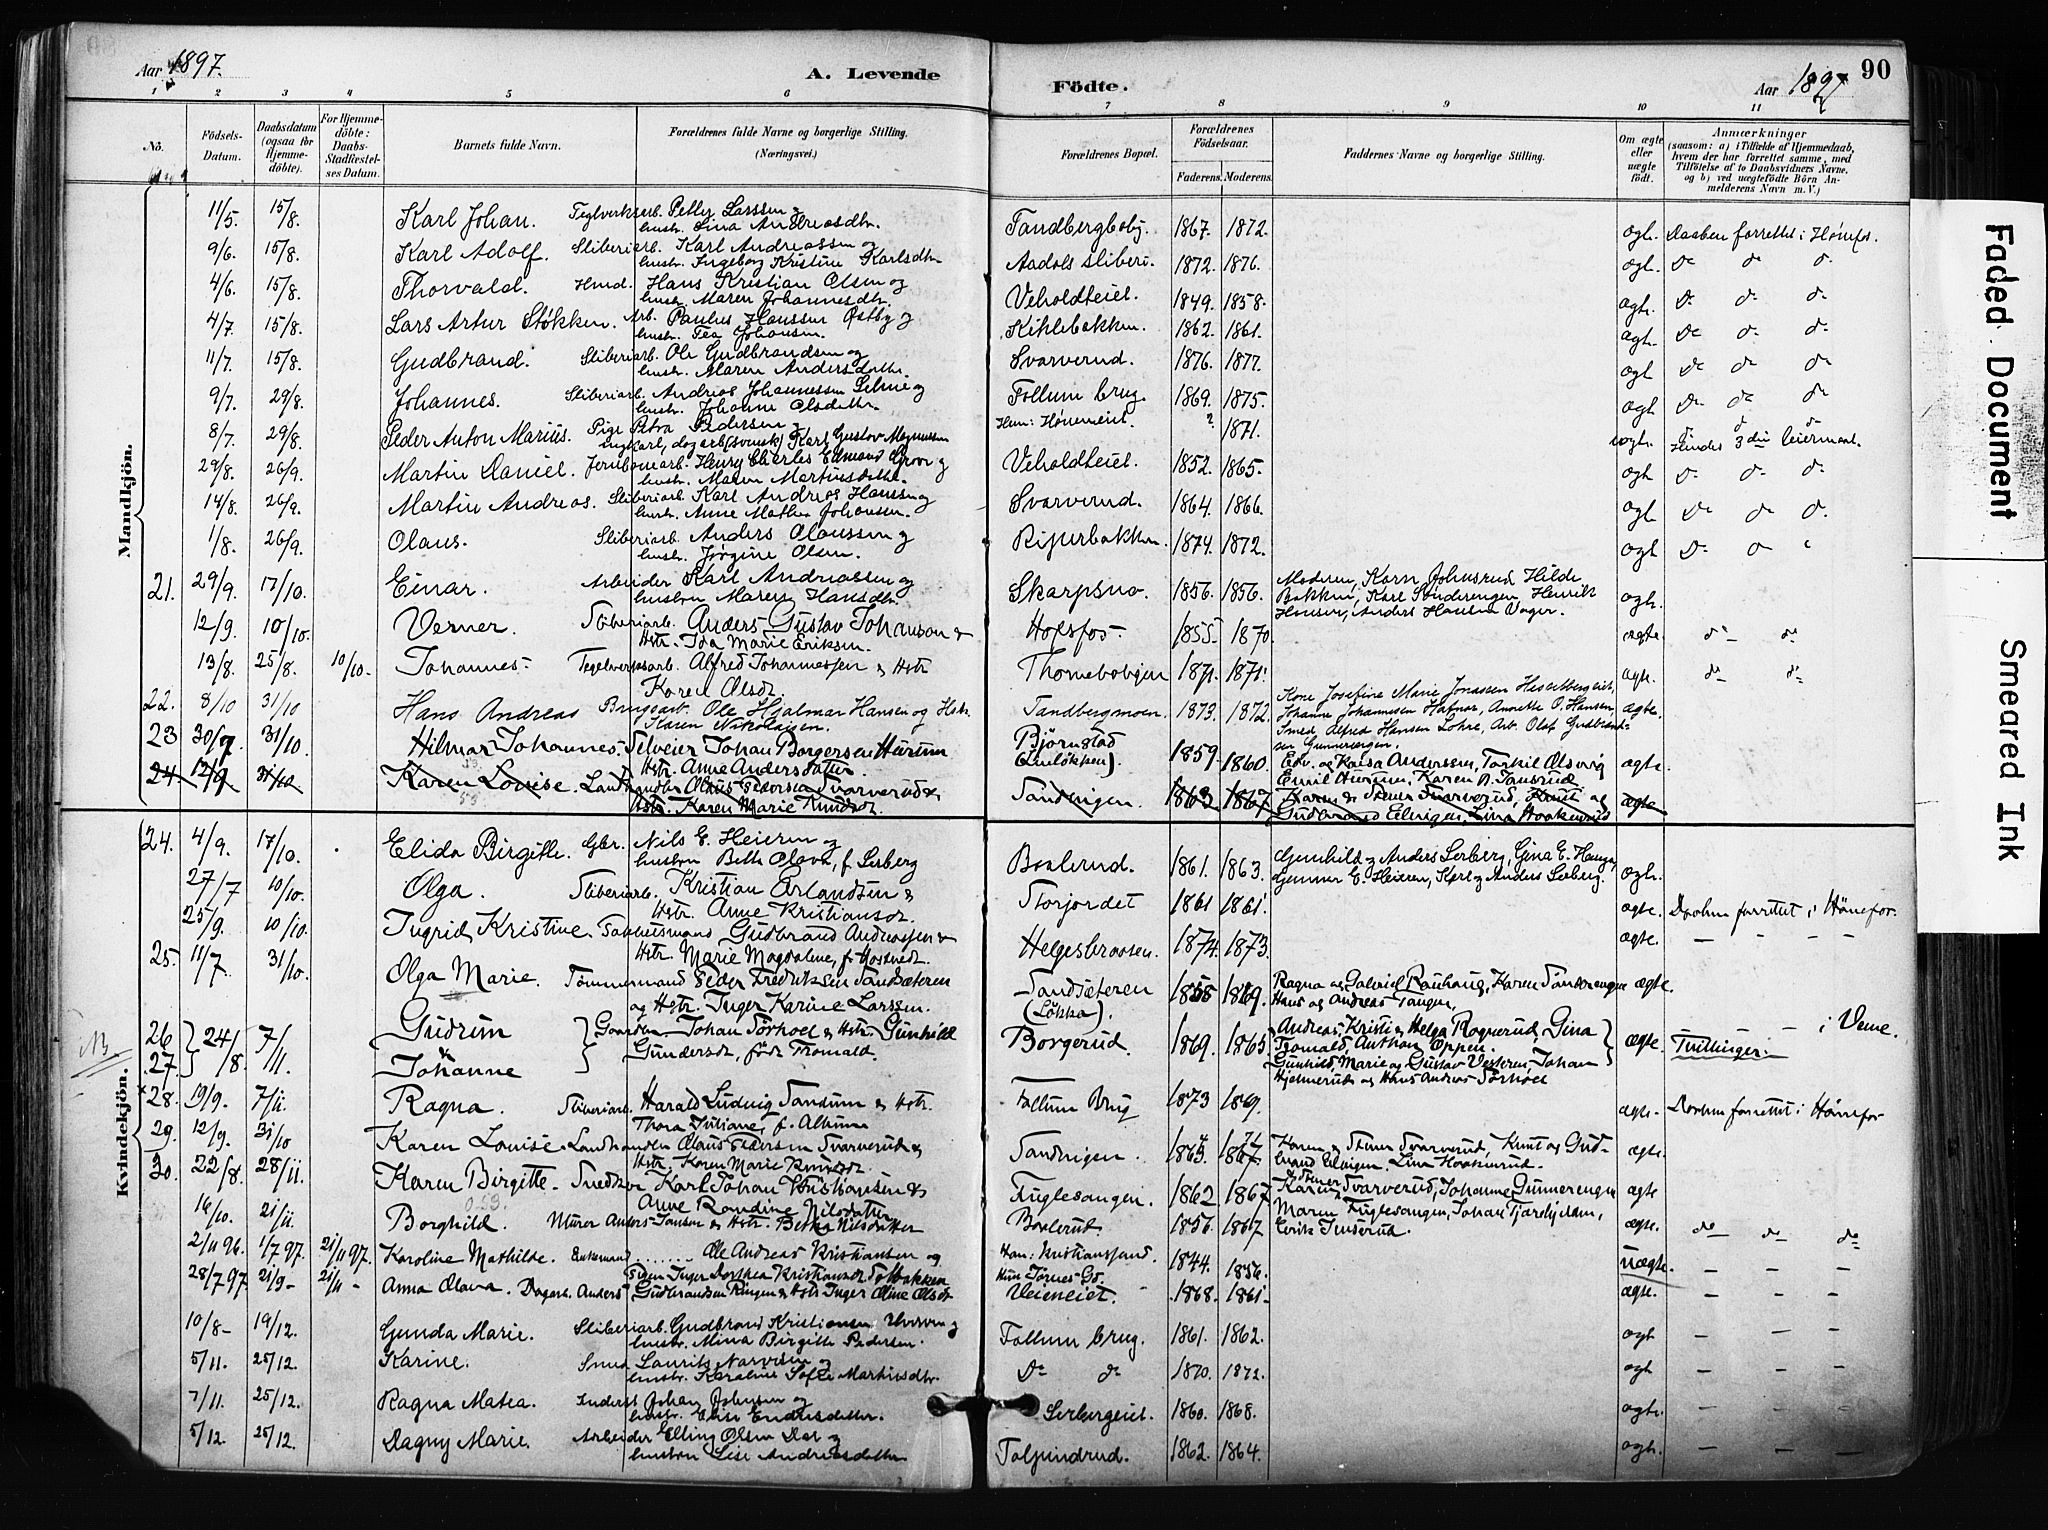 Aar 1897.
A. Levende
Födte.
Aar 1897
90
1 2 3 4 5 6 7 8 9 10 11
No.
Födsels-Datum.
Daabsdatum (ogsaa for Hjemmedöbte).
For Hjemmedöbte: Daabs-Stadfæstelses Datum.
Barnets fulde Navn.
Forældrenes fulde Navne og borgerlige Stilling.
(Næringsvei.)
Forældrenes Bopæl.
Forældrenes Födselsaar.
Faderens. Moderens.
Faddernes Navne og borgerlige Stilling.
Om ægte eller uægte födt.
Anmærkninger
(saasom: a) i Tilfælde af Hjemmedaab, hvem der har forrettet samme, med Tilföielse af to Daabsvidners Navne, og b) ved uægtefödte Börn Anmelderens Navn m. V.)
Mandkjön.
11/5. 15/8. Karl Johan. Teglverksarb. Larssen og Tandbergbobj. 1867. 1872. ægte. Daaben forrettet i Hønefos.
hustr. Lina Andreasdtr.
9/6. 15/8. Karl Adolf. Sliberiarb. Karl Andreassen og Aadals sliberi. 1872. 1876. ægte. Do do do
hustr. Ingeborg Kristine Karlsdtr.
4/6. 15/8. Thorvald. Hmd. Hans Kristian Olsen og Veholdteiet. 1849. 1858. ægte. Do do do
hustr. Maren Johannesdtr.
4/7. 15/8. Lars Artur Støkken. Arb. Paulus Hanssen Østby og Kihlebakken. 1862. 1861. ægte. Do do do
hustr. Tea Johansen.
11/7. 15/8. Gudbrand. Sliberiarb. Ole Gudbrandsen og Svarverud. 1876. 1877. ægte Do do do
hustr. Maren Andersdatter.
9/7. 29/8. Johannes. Sliberiarb. Andreas Johannessen og Follum brug. 1869. 1875. ægte Do do do
hustr. Johanne Olsdatter.
8/7. 29/8. Peder Anton Marius. Pige Petra Pedersen og Hun: Hønemeiet. ? 1871. uægte. do do
ungkarl, dagarb. (svensk) Karl Gustav Magnussen Hendes 3die leiermaal.
29/8. 26/9. Martin Daniel. Jernbanearb. Henry Charles Edmond og Veholdteiet. 1852. 1865. ægte Do do do
hustr. Maren Martinsdatter.
14/8. 26/9. Martin Andreas. Sliberiarb. Karl Andreas Hanssen og Svarverud. 1864. 1866. ægte Do do do.
hustr. Anne Mathea Johansen.
1/8. 26/9. Olaus. Sliberiarb. Anders Olaussen og 1874. 1872. ægte Do
hustr. Jørgine Olsen.
21. 29/9. 17/10. Einar. Arbeider Karl Andreassen og Skarpsno. 1856. 1856. Moderen, Karn Johnsrud, Hilde ægte.
hustru Maren Hansdtr. Bakken, Karl Sønderengen, Henrik
Hansen, Anders Hansen Vager.
12/9. 10/10. Verner. Sliberiarb. Anders Gustav Johanson & Hofsfos. 1855 1870. ægte. do do
Hstr. Ida Marie Eriksen.
13/8. 25/8. 10/10. Johannes. Tegelverksarb. Alfred Johannessen & Hstr 1871. 1871. ægte. do do
Karen Olsdt.
22. 8/10 31/10 Hans Andreas Brugsarb. Ole Hjalmar Hansen og Hstr. Tandbergmoen. 1873. 1872. ægte.
Karen Nikolaisen.
Kone Josefine Marie Jonassen Hesselbergeiet,
Johanne Johannesen Hafnor, Annette O. Hansen,
Smed Alfred Hansen Lohre, Arb. Olaf Gudbrandsen Gunnerengen.
23 30/7. 31/10. Hilmar Johannes. Selveier Johan Borgersen Hurum Bjørnstad 1859. 1860. ægte.
Hstr. Anne Andersdatter. Edv. og Kaisa Anderssen, Torkil Olsvig
Emil Hurum, Karen A. Jansrud
24. 12/9 31/10 Karen Louise. Landhandler Olaus Pedersen Svarverud & Sandvigen. 1863 1867 Karen & Stener Svarverud, Knut og ægte
Hstr. Karen Marie Knudsdt. Gudbrand Elvigen, Lina Haakenrud
Kvindekjön.
24. 4/9. 17/10. Elida Birgitte. Gbr. Nils E. Heieren og Boslerud. 1861. 1863. Gunhild og Anders Serberg, Gina E. Haugen ægte.
hustru Beth Olava, f. Serberg Gunnar E. Heieren, Karl og Anders Serberg.
27/7 10/10. Olga. Sliberiarb. Kristian Erlandsen & Storjordet 1861 1861. ægte. Daaben forrettet i Hønefos.
Hstr. Anne Kristiansdt.
25/9. 10/10. Ingrid Kristine. Gudbrand Andreassen & Helgesbraaten. 1874. 1873. ægte. — — — —
Hstr. Marie Magdalene, f.
25. 11/7. 31/10. Olga Marie. Tömmermand Peder Fredriksen Sandsæteren Sandsæteren 1858 1869. Ragna og Gabriel Rauhaug, Karen Sønderengen ægte.
og Hstr. Inger Karine Larssen. (Løkka). Hans og Andreas Tangen,
NB. 26 27 24/8. 7/11. Gudrun Gaardbr. Johan Sörhoel & Hstr. Gunhild Borgerud. 1869. 1865. Andreas, Kristi & Helga Ragnerud, Gina ægte. — i Veme.
Johanne Gundersdt, född Tromald. Tromald, Anthon Oppen. Tvillinger.
Gunhild, Marie og Gustav Vesteren, Johan
Hjelmerud & Hans Andreas Sörhoel
28. 19/9. 7/11. Ragna. Sliberiarb. Harald Ludvig Sandum & Hstr. Follum Brug 1873 1869. ægte. Daaben forrettet i Hönefos
Thora Juliane, f. Alhum
29. 12/9. 31/10 Karen Louise. Landhandler Olaus Pedersen Svarverud & Sandvigen. 1863. 1867. Karen & Stener Svarverud, Knut og Gud- ægte.
Hstr. Karen Marie Knudsdt. brand Elvigen Lina Haakenrud.
30. 22/8. 28/11. Karen Birgitte. Snedker Karl Johan Kristiansen & Fuglesangen. 1862 1867 Stener Karen Svarverud, Johanne Gunnerengen ægte
Anne Randine Nilsdatter Maren Fuglesangen, Johan Tjærahjelm,
16/10. 21/11. Borghild. Murer Anders Jansen & Hstr. Bertha Nilsdatter Boslerud. 1856. 1867 Eerik Jenserud. ægte. do do do
2/11 96. 1/7 97. 21/11 97. Karoline Mathilde. Enkemand ....... Ole Andreas Kristiansen og Han: Kristianssand. 1844. 1856. uægte. — — —
Pigen Inger Dorthea Kristiansdt
28/7 97. 21/9 – 21/11 – Anna Olava. Dagarb. Anders Gudbrandsen Ringen & Hstr Inger Oline Olsdt Veieneiet. 1868. 1861. ægte. — — —
10/8– 19/12. Gunda Marie. Sliberiarb. Gudbrand Kristiansen og Follum brug. 1861. 1862. ægte — — —
hustr. Mina Birgitte Pedersen.
5/11. 25/12. Karine. Smed Laurits Narvesen og Do do 1870. 1872. ægte — — —
hustr. Karoline Sofie Martinsdtr.
7/11. 25/12. Ragna Matea. Inderst Johan Johnsen og Serbergeiet. 1860. 1868. ægte. — — —
hustr. Elise Endresdatter.
5/12. 25/12. Dagny Marie. Arbeider Elling Olsen Dal og Tolpindrud. 1862. 1864. ægte. — — —
hustru Lise Andreasdatter
Faded Document
Smeared Ink